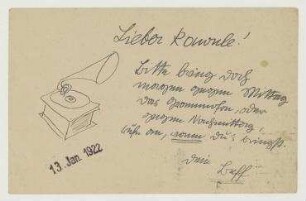 Lieber
Bitte bring doch
morgen gegen Mittag
das Grammofon, oder
gegen Nachmittag,
rufe an, wann du's bringst.
dein
13. Jan. 1922